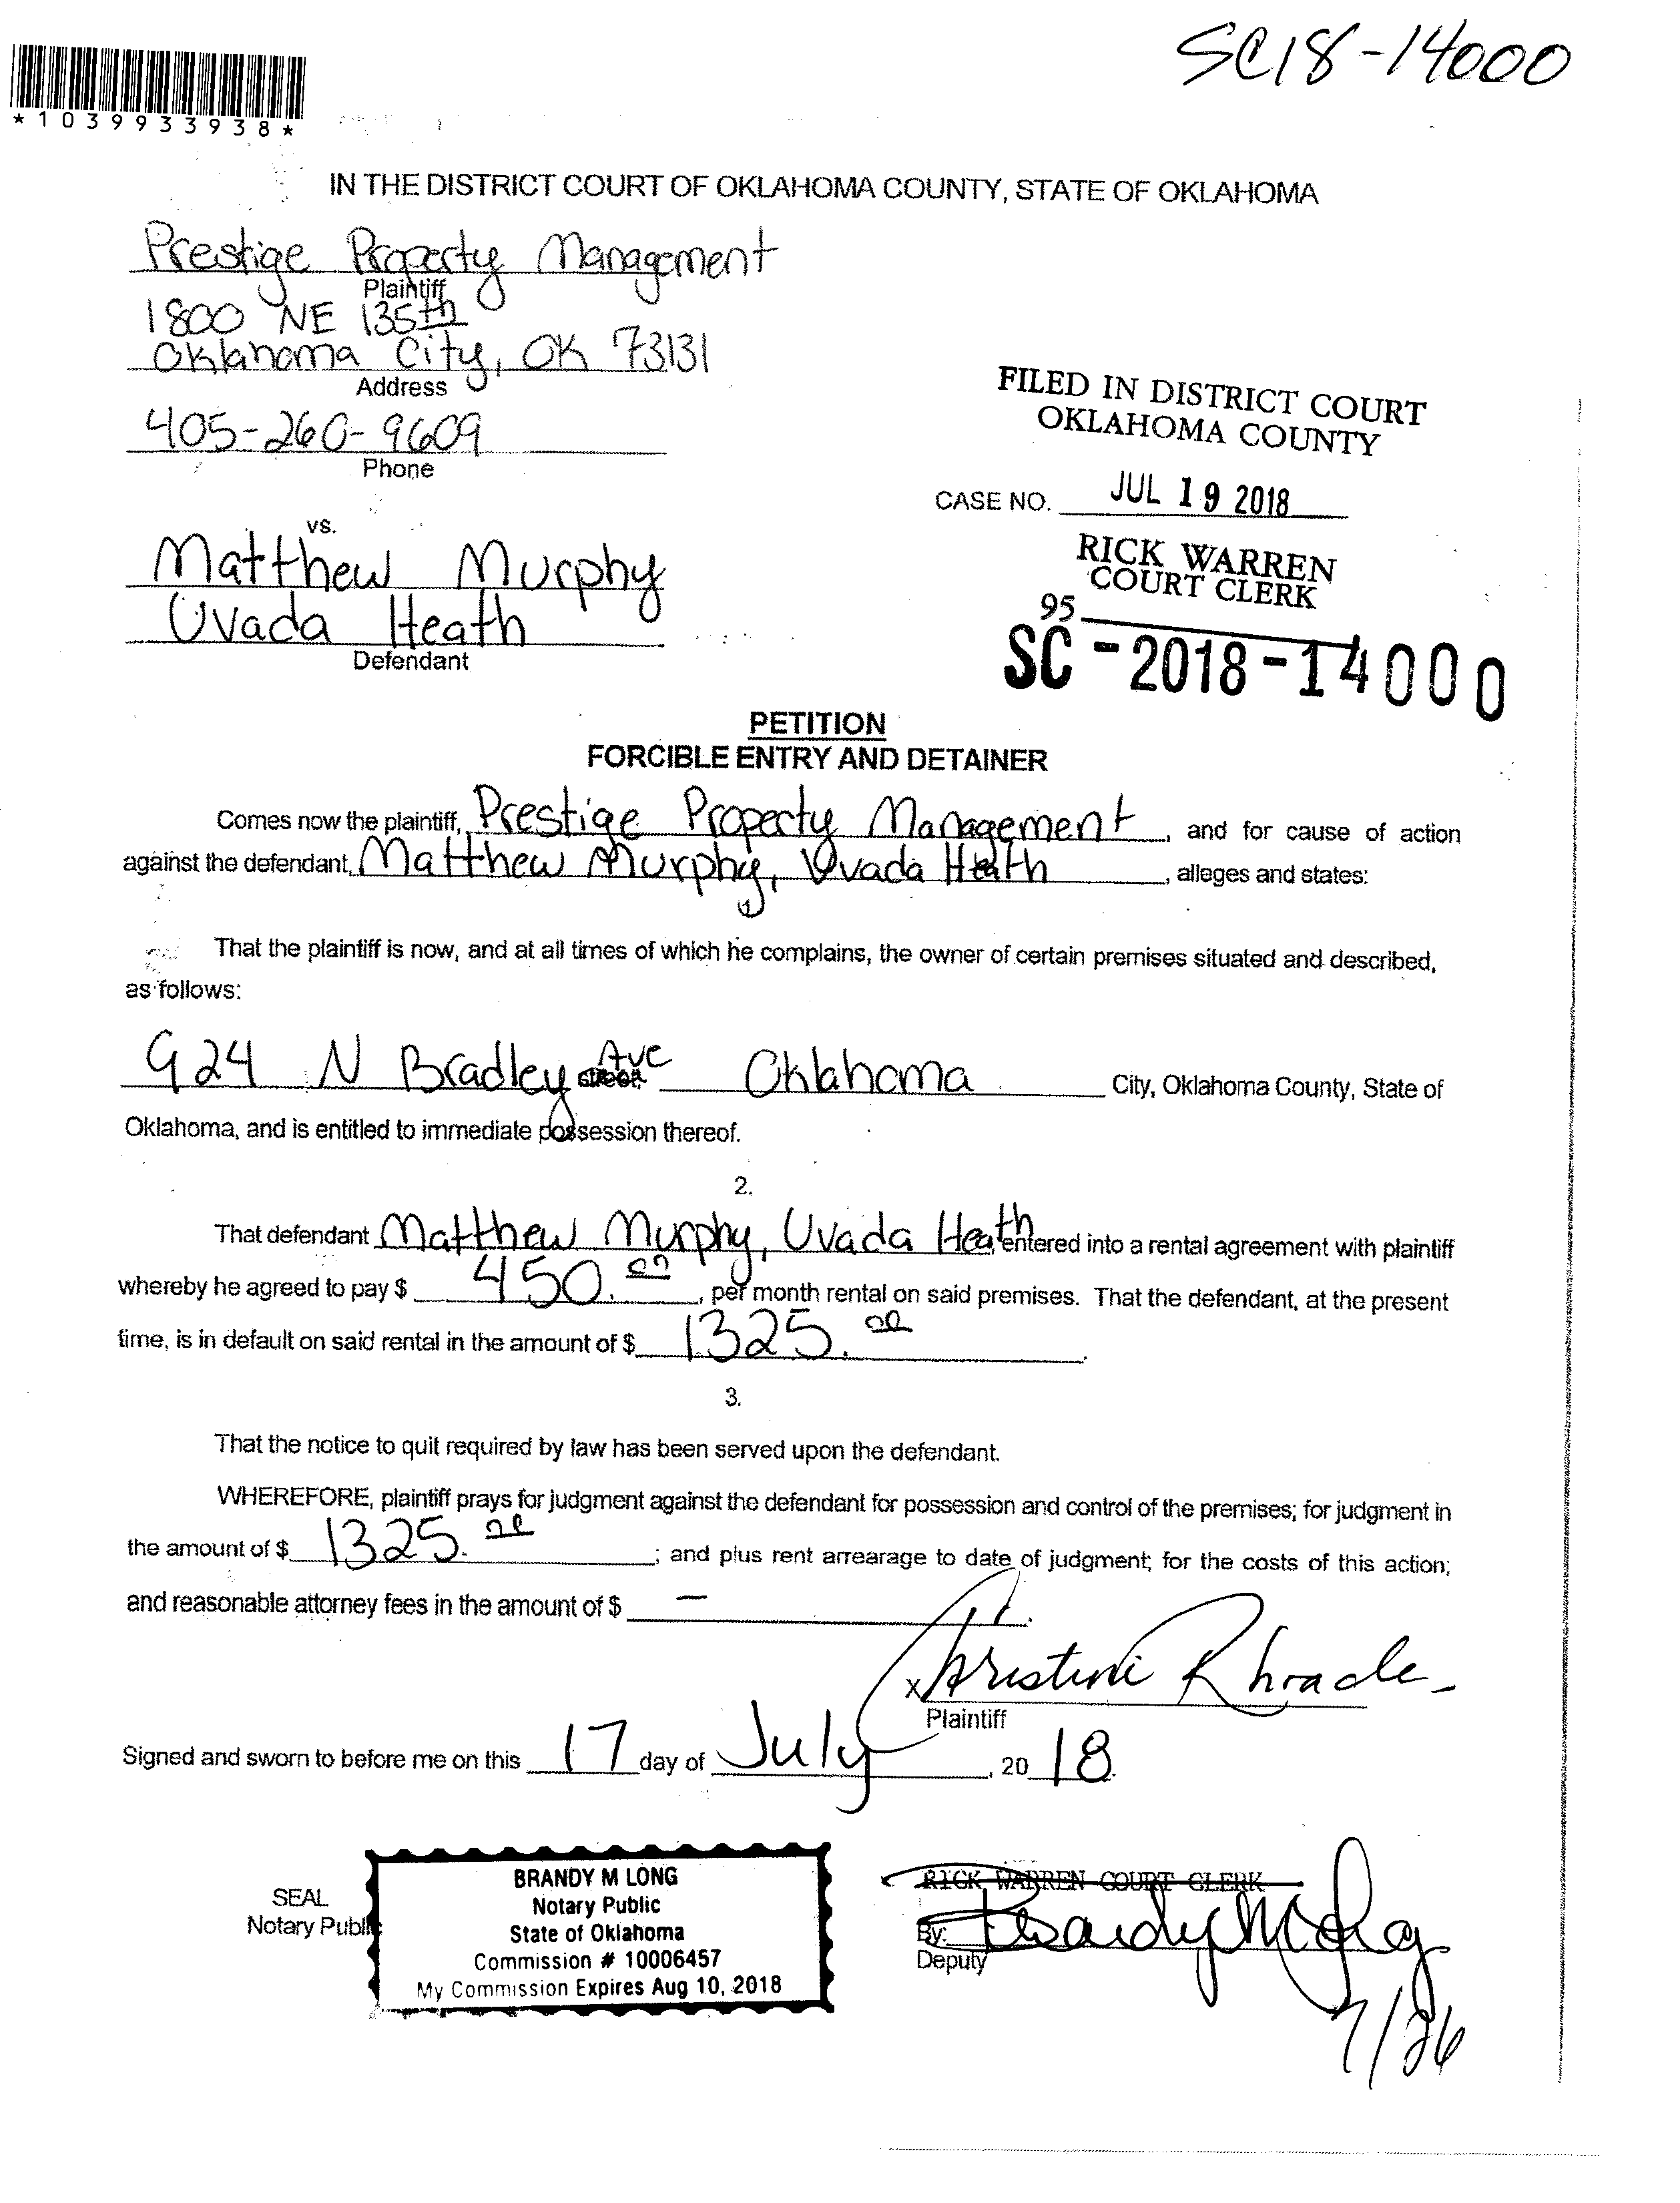 SC18-14000
*1039933938*
IN THE DISTRICT COURT OF OKLAHOMA COUNTY, STATE OF OKLAHOMA
Prestige Property Management
Plaintiff
1800 NE 135th
Oklahoma City, OK 73131
Address
405-260-9609
Phone
FILED IN DISTRICT COURT
OKLAHOMA COUNTY
CASE NO. JUL 19 2018
vs.
RICK WARREN
COURT CLERK
Matthew Murphy
95
Uvada Heath
Defendant
SC-2018-14000
PETITION
FORCIBLE ENTRY AND DETAINER
Comes now the plaintiff, Prestige Property Management, and for cause of action
against the defendant, Matthew Murphy, Uvada Heath, alleges and states:
1
That the plaintiff is now, and at all times of which he complains, the owner of certain premises situated and described,
as follows:
924 N Bradley Ave Oklahoma City, Oklahoma County, State of
Oklahoma, and is entitled to immediate possession thereof.
2.
That defendant Matthew Murphy, Uvada Heath entered into a rental agreement with plaintiff
whereby he agreed to pay $ 450.00, per month rental on said premises. That the defendant, at the present
time, is in default on said rental in the amount of $ 1325.00.
3.
That the notice to quit required by law has been served upon the defendant.
WHEREFORE, plaintiff prays for judgment against the defendant for possession and control of the premises; for judgment in
the amount of $ 1325.00; and plus rent arrearage to date of judgment; for the costs of this action;
and reasonable attorney fees in the amount of $ —.
x Christine Rhoade
Plaintiff
Signed and sworn to before me on this 17 day of July, 2018.
SEAL
Notary Public
BRANDY M LONG
Notary Public
State of Oklahoma
Commission # 10006457
My Commission Expires Aug 10, 2018
RICK WARREN COURT CLERK
By: Brandy M Long
Deputy
7/26